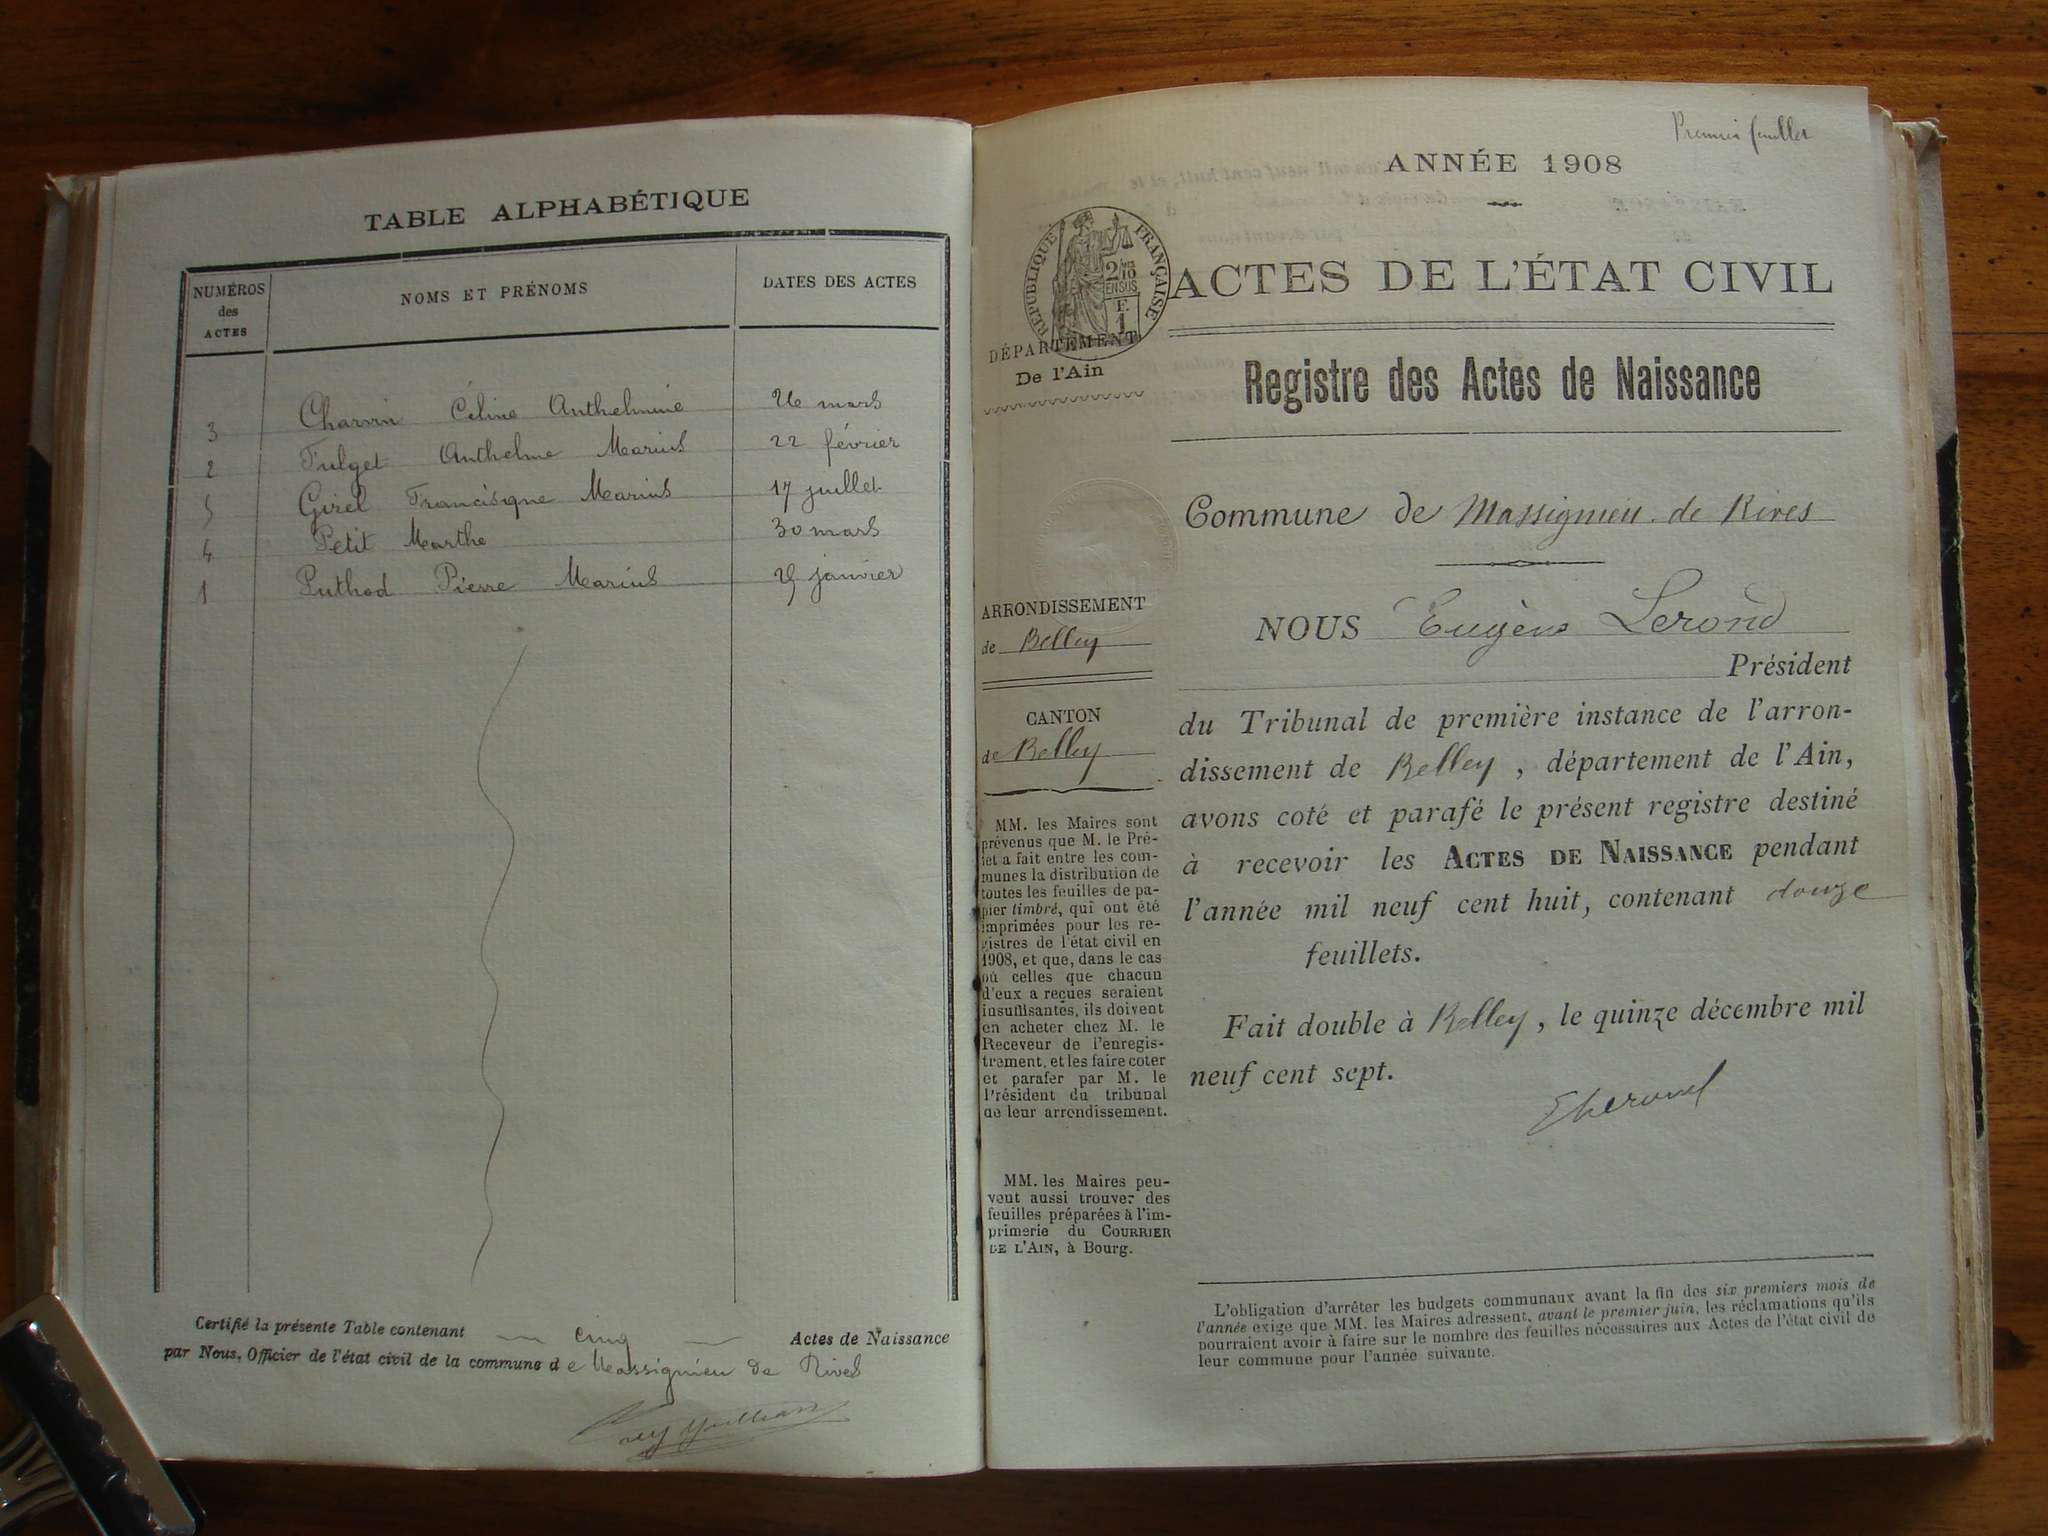 TABLE ALPHABÉTIQUE
NUMÉROS
des
ACTES
NOMS ET PRÉNOMS
DATES DES ACTES
3 Charvin Céline Anthelmine 26 mars
2 Fulget Anthelme Marius 22 février
5 Girel Francisque Marius 17 juillet
4 Petit Marthe 30 mars
1 Puthod Pierre Marius 25 janvier
Certifié la présente Table contenant cinq Actes de Naissance
par Nous, Officier de l'état civil de la commune de Massignieu de Rives
Premier feuillet
ANNÉE 1908
RÉPUBLIQUE FRANÇAISE
2/10
EN SUS
F.
1
ACTES DE L'ÉTAT CIVIL
DÉPARTEMENT
De l'Ain
Registre des Actes de Naissance
Commune de Massignieu de Rives
ARRONDISSEMENT
de Belley
CANTON
de Belley
MM. les Maires sont
prévenus que M. le Pré-
fet a fait entre les com-
munes la distribution de
toutes les feuilles de pa-
pier timbré, qui ont été
imprimées pour les re-
gistres de l'état civil en
1908, et que, dans le cas
où celles que chacun
d'eux a reçues seraient
insuffisantes, ils doivent
en acheter chez M. le
Receveur de l'enregis-
trement, et les faire coter
et parafer par M. le
Président du tribunal
de leur arrondissement.
MM. les Maires peu-
vent aussi trouver des
feuilles préparées à l'im-
primerie du COURRIER
DE L'AIN, à Bourg.
NOUS Eugène Lerond
Président
du Tribunal de première instance de l'arron-
dissement de Belley, département de l'Ain,
avons coté et parafé le présent registre destiné
à recevoir les ACTES DE NAISSANCE pendant
l'année mil neuf cent huit, contenant douze
feuillets.
Fait double à Belley, le quinze décembre mil
neuf cent sept.
L'obligation d'arrêter les budgets communaux avant la fin des six premiers mois de
l'année exige que MM. les Maires adressent, avant le premier juin, les réclamations qu'ils
pourraient avoir à faire sur le nombre des feuilles nécessaires aux Actes de l'état civil de
leur commune pour l'année suivante.